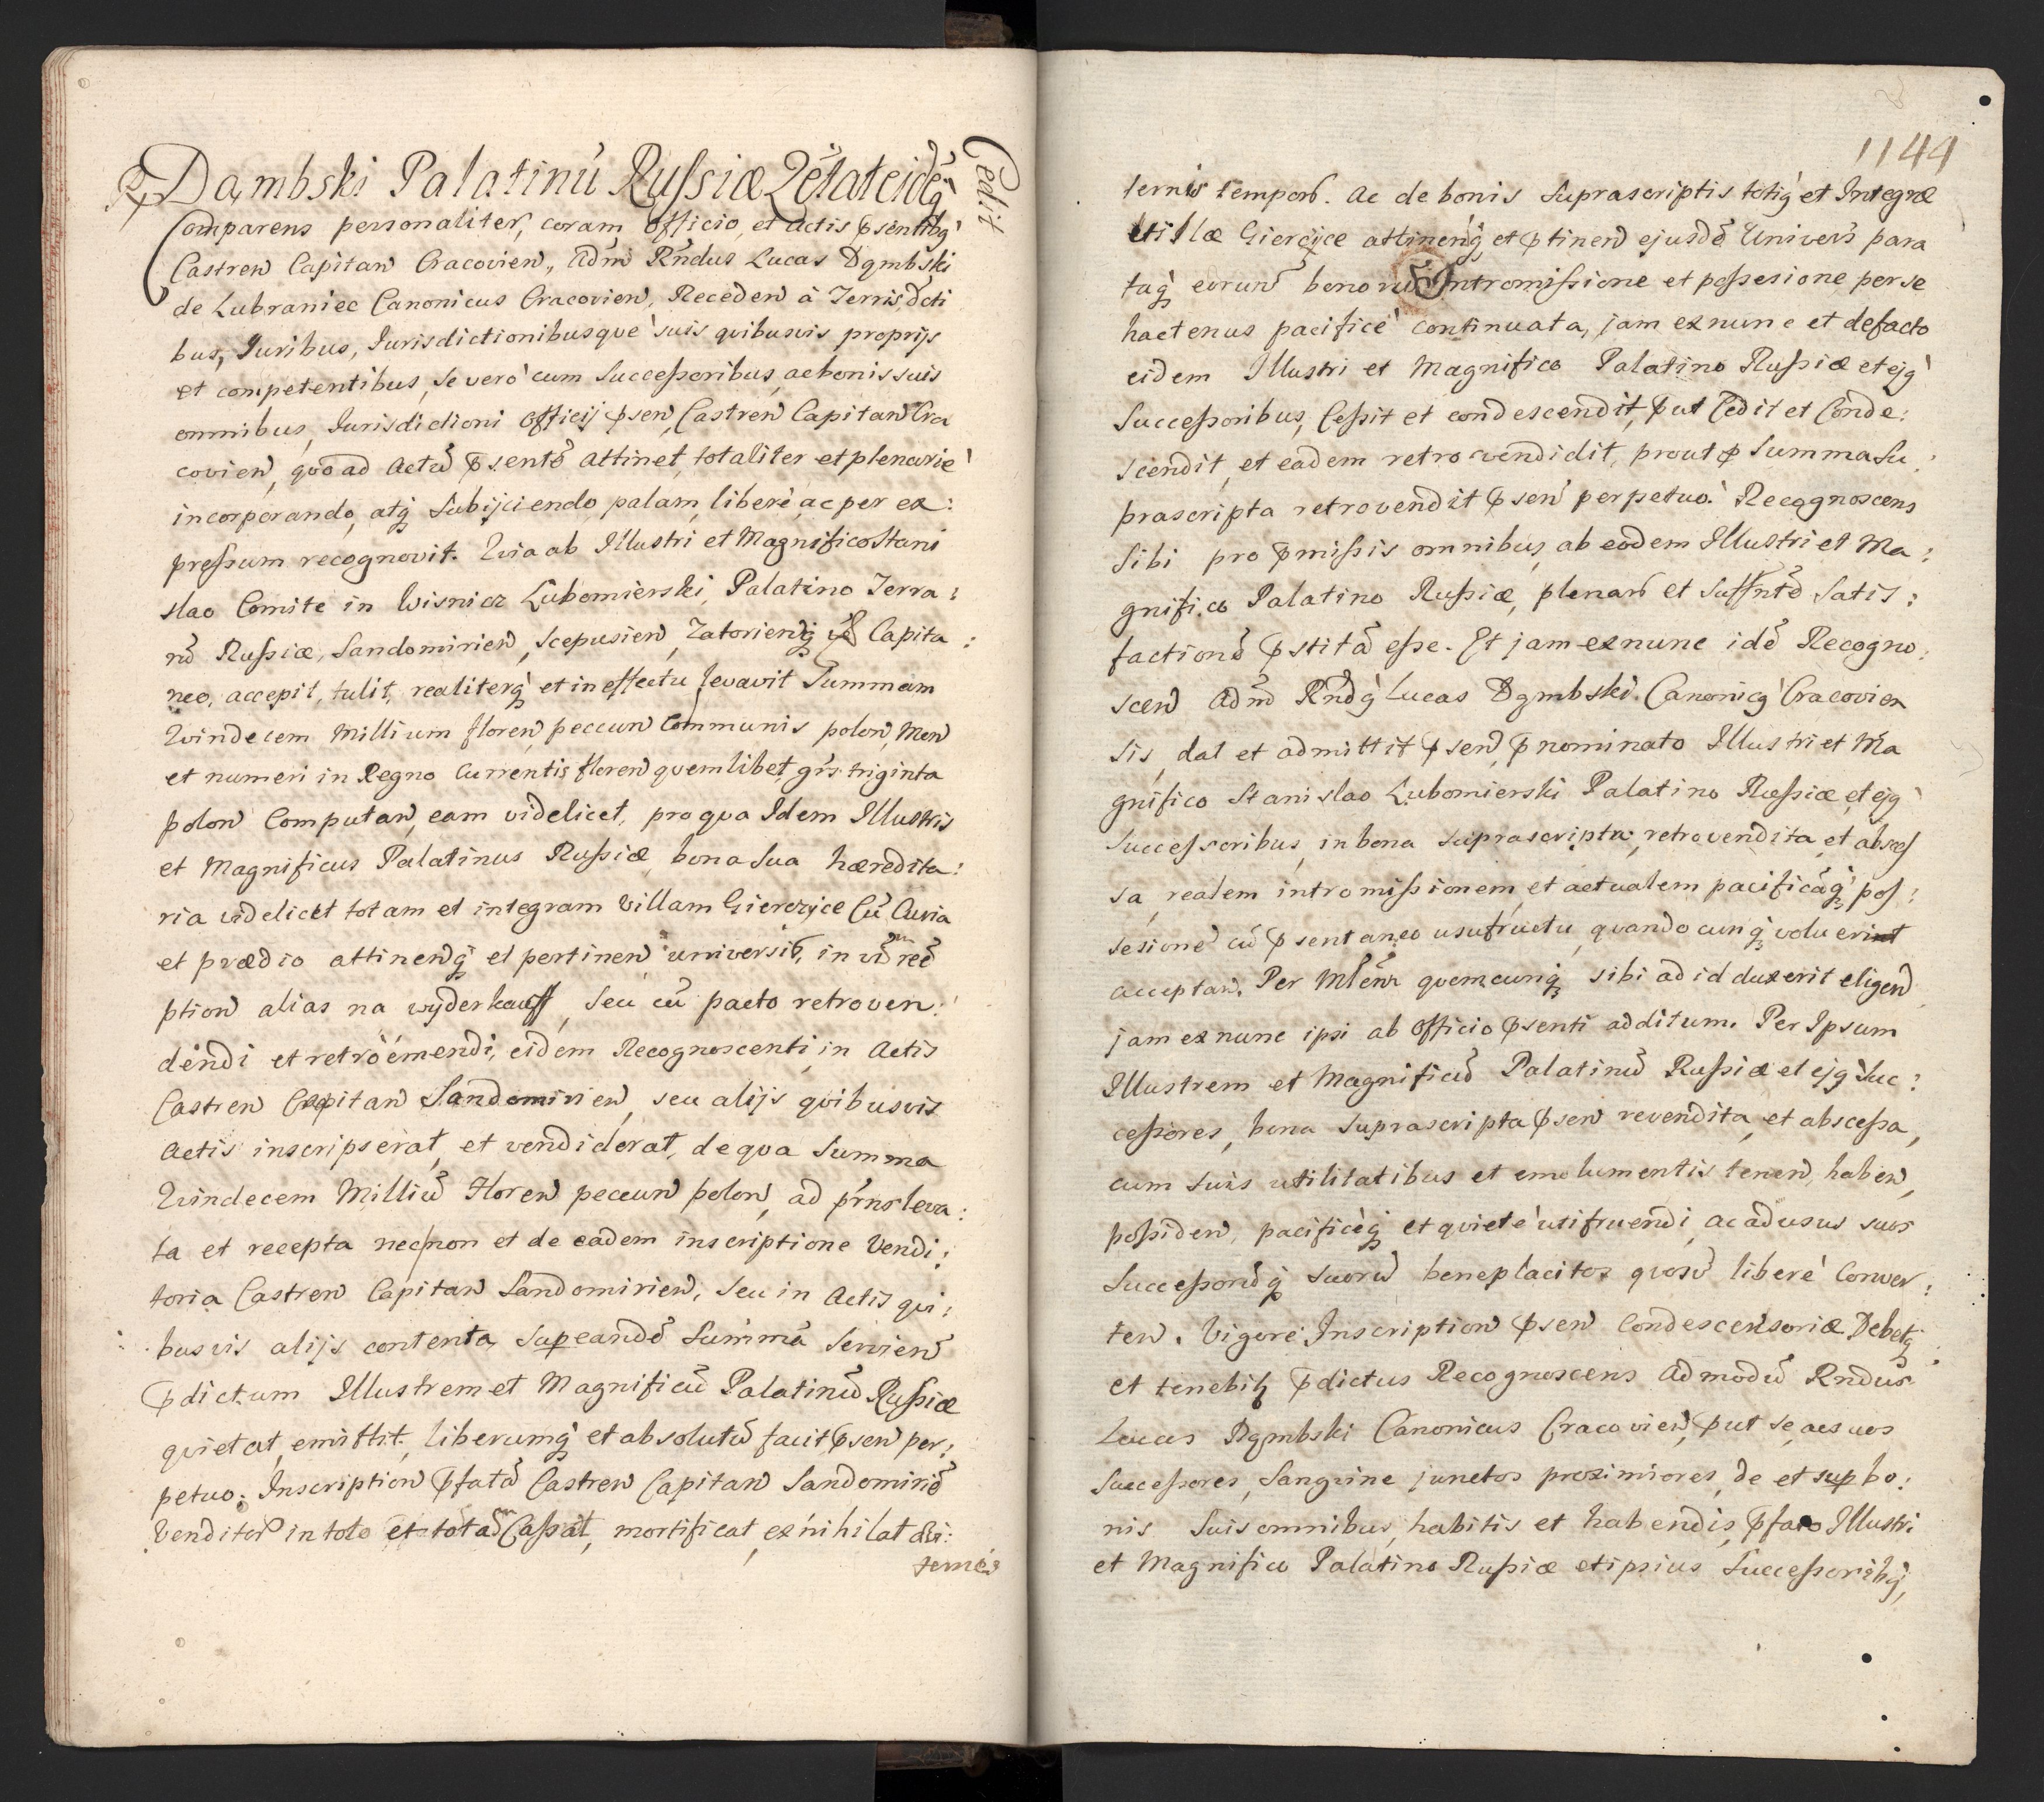 Dąmbski Palatinū Russiæ Q̃etat eidẽq̃
Cedit
Comparens personaliter, coram officio, et Actis ꝓsentibꝗ
Castren̄ Capitan̄ Cracovien̄, Adm̄ Rńdus Lucas Dąmbski
de Lubraniec Canonicus Cracovien̄, Receden̄ à Terris, d̃cti
bus, Juribus, Jurisdictionibusque suis quibusvis proprijs
et competentibus, se verò cum Successoribus, ac bonis suis
omnibus, Jurisdictioni officij ꝓsen̄, Castren̄ Capitan̄ Cra
covien̄, quo ad Actū ꝓsentē attinet, totaliter et plenarie
incorporando, atꝗ Subijciendo, palam, liberè, ac per ex:
pressum recognovit. Quia ab Illustri et Magnifico Stani
slao Comite in Wisnicz Lubomierski, Palatino Terra:
rū Russiæ, Sandomirien̄, Scepusien̄, Zatorien̄ꝗ Capita:
neo, accepit, tulit, realiterꝗ et in effectu levavit Summam
Quindecem Millium floren̄ peccun̄ Communis polon̄, Mon̄
et numeri in Regno Currentis floren̄ quemlibet, gr̃s triginta
polon̄ Computan̄, eam videlicet, pro qua Idem Illustris
et Magnificus Palatinus Russiæ, bona Sua hæredita:
ria videlicet totam et integram Villam Gierczyce Cū Curia
et prædio attinen̄ꝗ et pertinen̄ universis, in vim reē
ption̄ alias na wyderkauff, seu cū pacto retroven:
dendi et retrò emendi, eidem Recognoscenti, in Actis
Castren̄ Capitan̄ Sandomirien̄, seu alijs quibusvis
Actis inscripserat, et vendiderat, de qua Summa
Quindecem Milliū Floren̄ peccun̄ polon̄, ad pr̃ns leva:
ta et recepta nec non et de eadem inscriptione Vendi:
toria Castren̄ Capitan̄ Sandomirien̄, Seu in Actis qui:
busvis alijs contenta, super eandē Summā Servien̄
ꝓdictum Illustrem et Magnificū Palatinū Russiæ
quietat, emittit, liberumꝗ et absolutū facit ꝓsen̄ per:
petuo; Inscription̄ ꝓfatā Castren̄ Capitan̄ Sandomiriē
Venditor̃ in toto et totā Cassat, mortificat, exnihilat
1144
ternis tempor̃. Ac de bonis Suprascriptis totiꝗ et Integræ
Villæ Gierczyce attinen̄ꝗ et ꝓtinen̄ ejusdē Univers̃ para
taꝗ eorum̄ bonorū Intromissione et possesione per se
hactenus pacificè continuata, jam exnunc et defacto
eidem Illustri et Magnifico Palatino Russiæ et ejꝗ
Successoribus, Cessit et condescendit, ꝓut Cedit et Conde:
scendit, et eadem retrovendidit, prout ꝓ Summa Su
prascripta retrovendit ꝓsen̄ perpetuò. Recognoscens
Sibi pro ꝓmissis omnibus, ab eodem Illustri et Ma:
gnifico Palatino Russiæ, plenar̃ et Suffntē Satis:
factionē ꝓstitā esse. Et jam exnunc idē Recogno:
scen̄ Adm̄ Rndꝗ Lucas Dąmbski Canonicꝗ Cracovien
sis, dat et admittit ꝓsen̄, ꝓnominato Illustri et Ma
gnifico Stanislao Lubomierski Palatino Russiæ, et ejꝗ
Successoribus, in bona suprascripta, retrovendita, et absces
sa, realem intromissionem, et actualem pacificāꝗ pos:
sesionē cū ꝓsentaneo usufructu, quandocunꝗ voluerint
acceptan̄. Per Mlēm quemcunꝗ sibi ad id duxerit eligen̄
jam exnunc ipsi ab officio ꝓsenti additum. Per Ipsum
Illustrem et Magnificū Palatinū Russiæ et ejꝗ Suc:
cessores, bona Suprascripta ꝓsen̄ revendita, et abscessa,
cum Suis utilitatibus et emolumentis tenen̄, haben̄,
possiden̄, pacificèꝗ et quietè utifruendi, ac ad usus suos
Successorūꝗ suorū beneplacitos quosv̄ liberè Conver:
ten̄. Vigore Inscription̄ ꝓsen̄ Condescensoriæ Debetꝗ
et tenebitꝗ ꝓdictus Recognoscens Admodū Rndus
Lucas Dąmbski Canonicus Cracovien̄, ꝓut se, ac suos
Successores, Sangvine junctos proximiores, de et sup bo:
nis Suis omnibus, habitis et habendis, ꝓfato Illustri
et Magnifico Palatino Russiæ et ipsius Successoribꝗ,